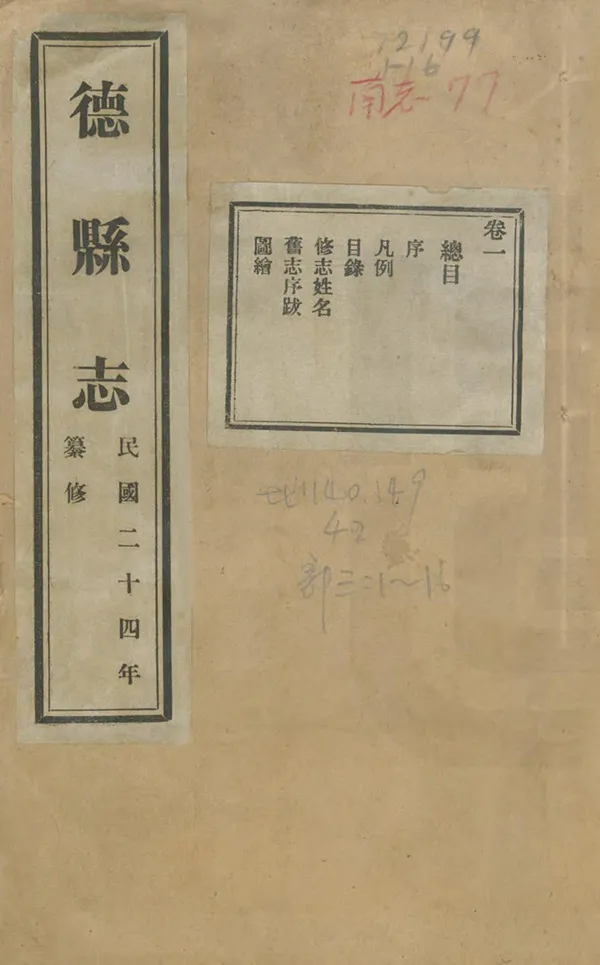 德縣志
民國二十四年
纂修
卷一
總目
序
凡例
目錄
修志姓名
舊志序跋
圖繪
72199
1-16
南志-77
140.149
42
郭三:1~16